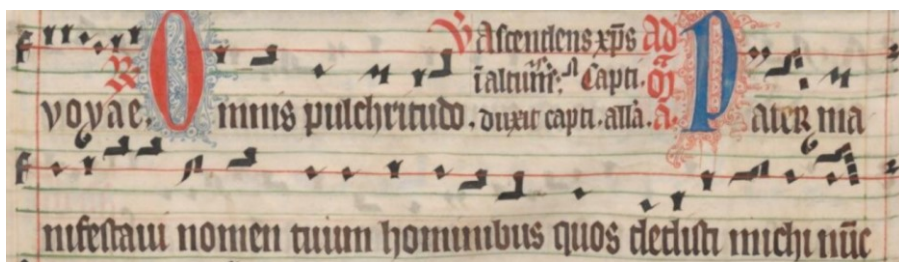 ℣ Ascendens xp̄s ad
ī altum. Capti.
vovae. ℟ Omnis pulchritudo. duxit capti. all'a. a. Pater ma
nifestaui nomen tuum hominibus quos dedisti michi nūc